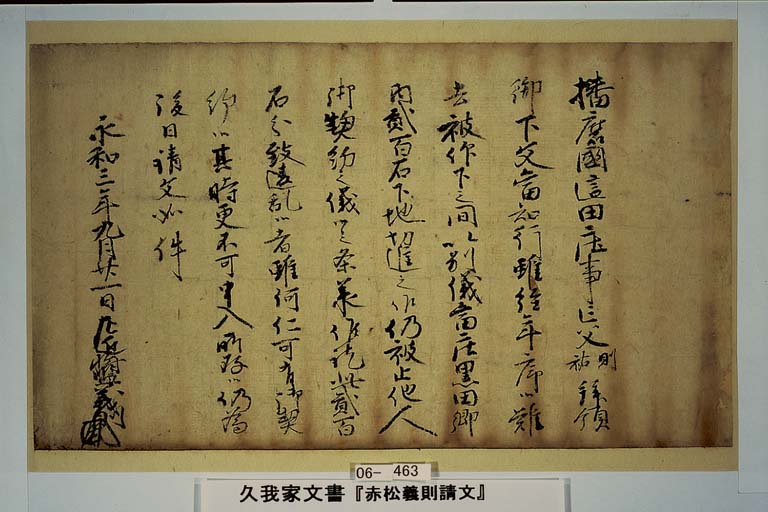 播磨國這田庄事亡父則祐拝領
御下文當知行雖經年序候難
去被仰下之間以別儀當庄黒田郷
内貳百石下地切進之候仍被止他人
御契約之儀候之条承候訖此貳百
石分致違乱候者雖何仁可有御契
約候其時更不可申入所存候仍為
後日請文如件
永和三年九月廿一日 義則
06- 463
久我家文書『赤松義則請文』